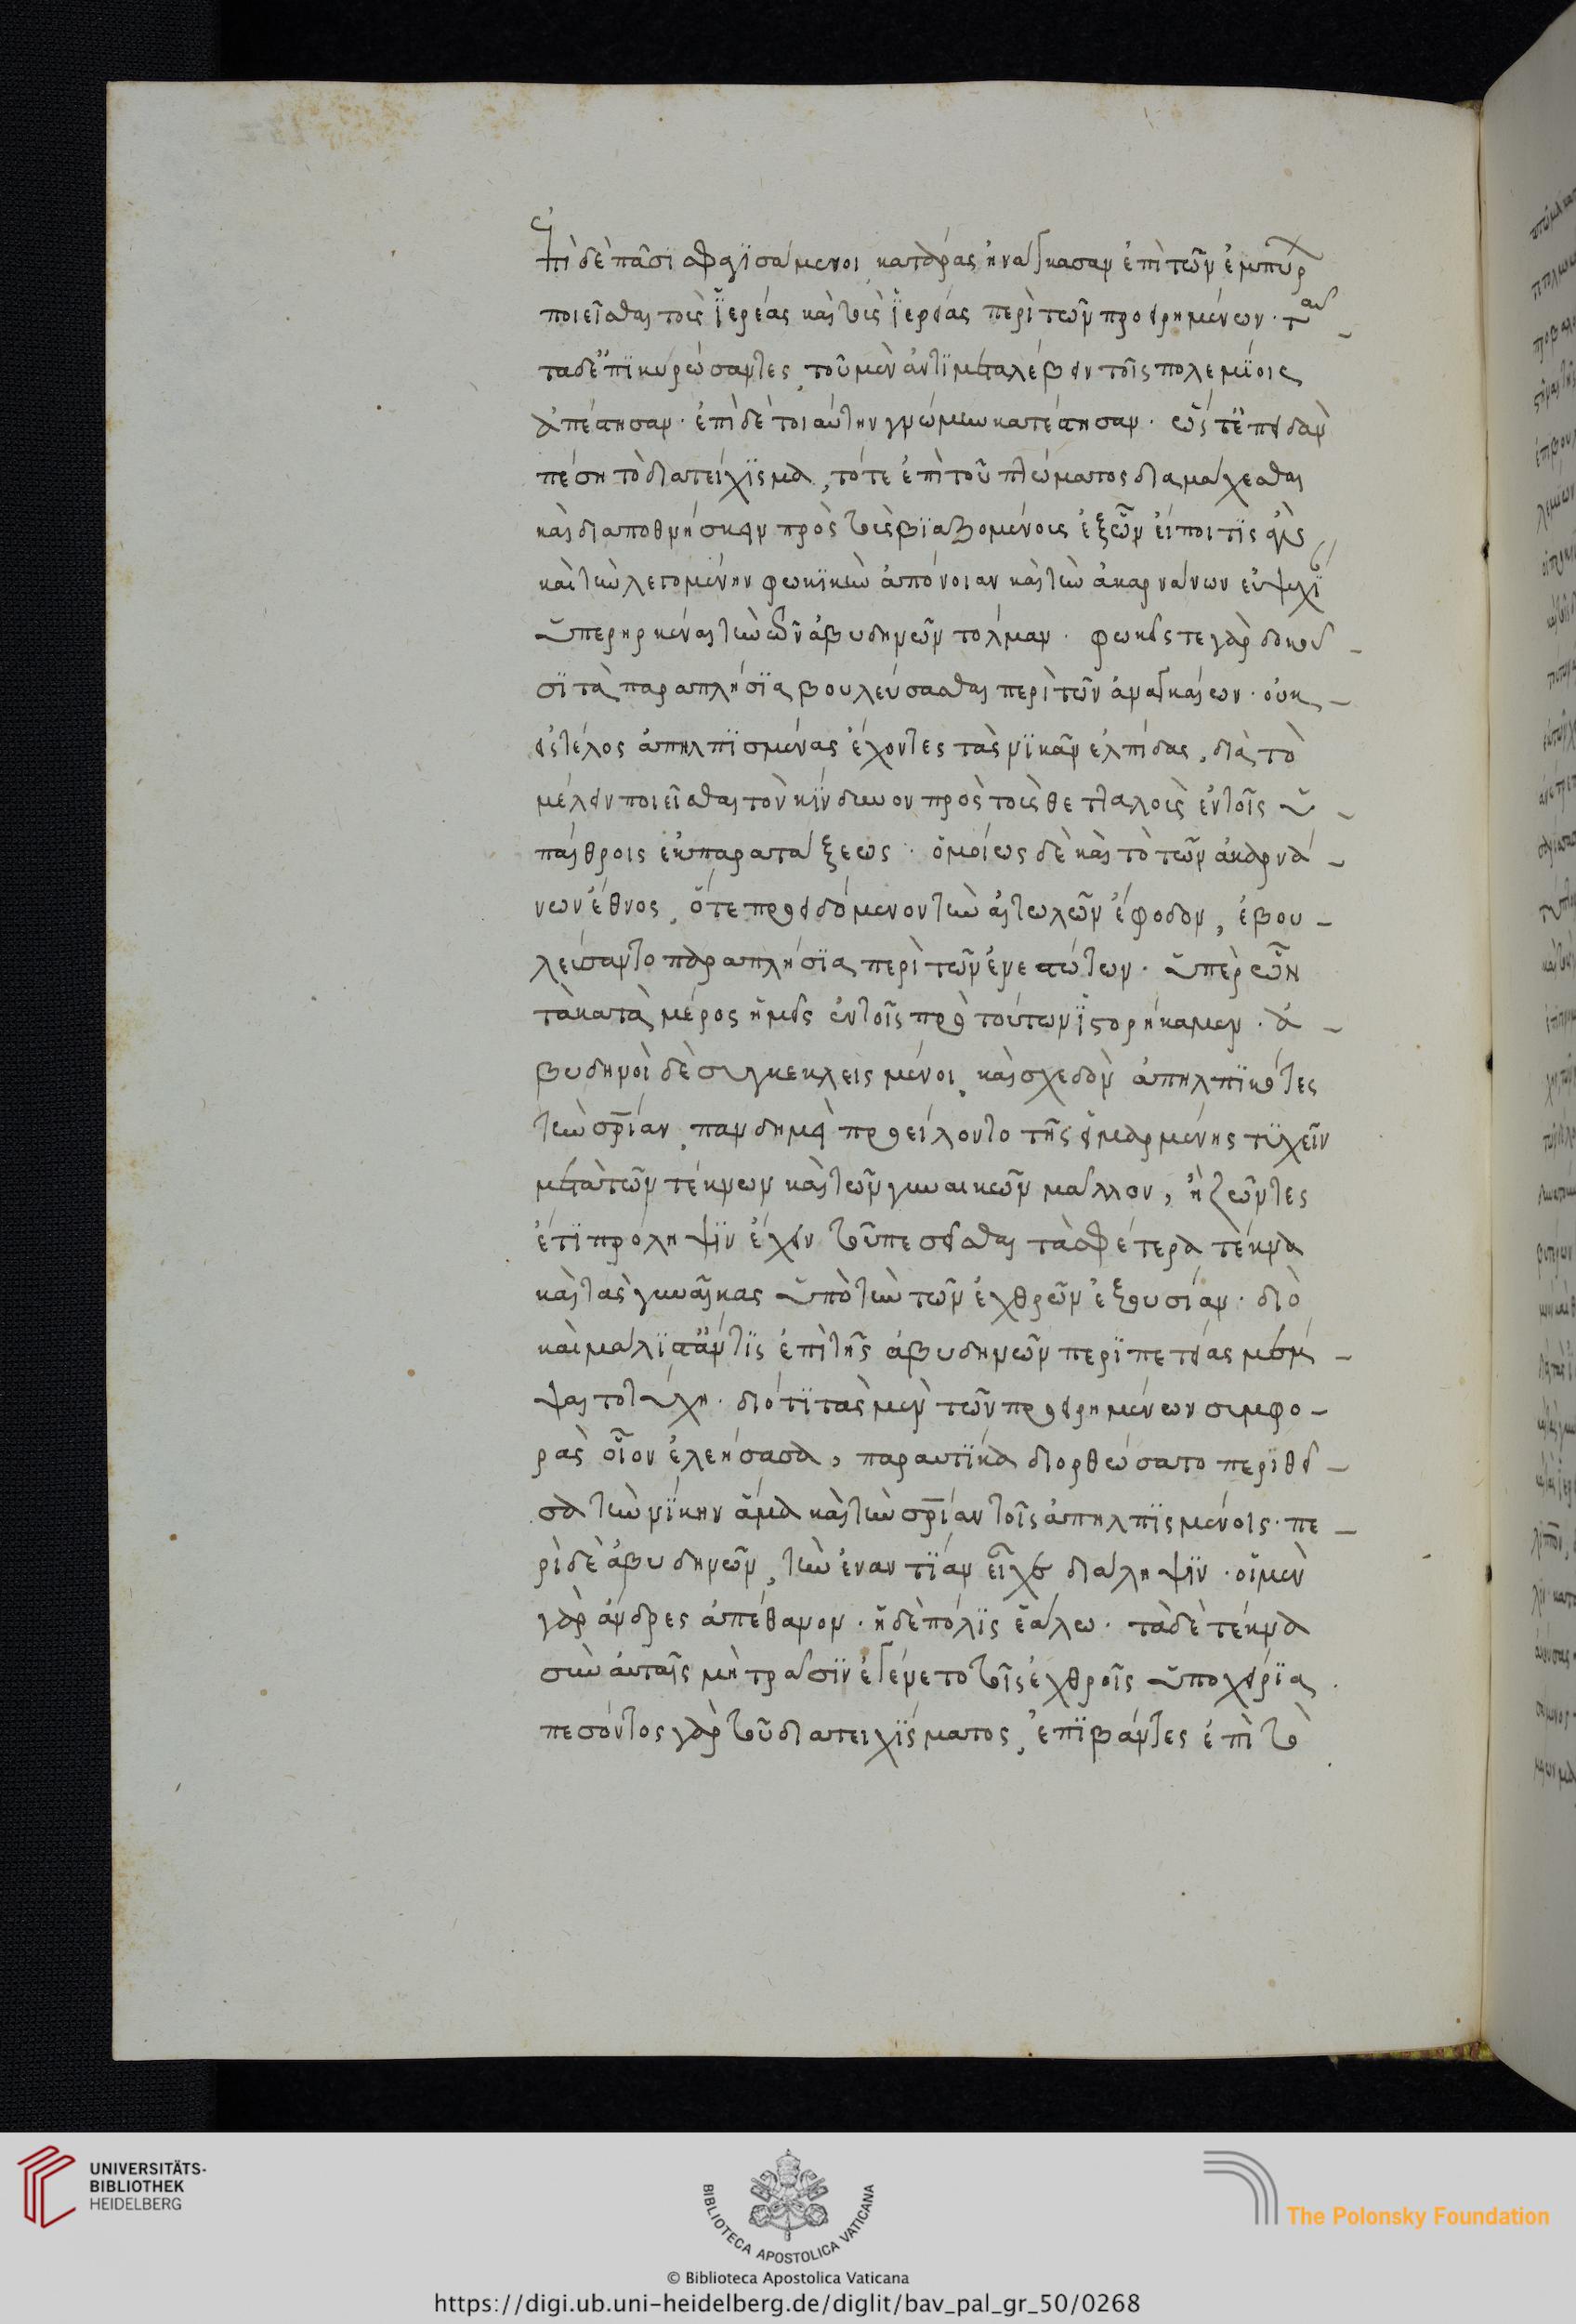 ἐπὶ δὲ πᾶσι σφαγισάμενοι, κατάρας ἠνάγκασαν ἐπὶ τῶν ἐμπύρ
ποιεῖσθαι τοὺς ἱερέας καὶ τὰς ἱερείας περὶ τῶν προειρημένων· ταῦ-
τα δ' ἐπικυρώσαντες, τοῦ μὲν ἀντιμεταλέβειν τοῖς πολεμίοις
ἀπέστησαν· ἐπὶ δὲ τοιαύτην γνώμην κατέστησαν· ὥστ' ἐπειδὰν
πέσῃ τὸ διατείχισμα, τότε ἐπὶ τοῦ πτώματος διαμάχεσθαι
καὶ διαποθνήσκειν πρὸς τοὺς βιαζομένους ἐξ ὧν εἴποι τις ὡς
καὶ τὴν λεγομένην φωκικὴν ἀπόνοιαν καὶ τὴν ἀκαρνάνων εὐψυχί
ὑπερηρκέναι τὴν τῶν ἀβυδηνῶν τόλμαν· φωκεῖς τε γὰρ δοκοῦ-
σι τὰ παραπλήσια βουλεύσασθαι περὶ τῶν ἀναγκαίων· οὐκ
εἰς τέλος ἀπηλπισμένας ἔχοντες τὰς νικᾶν ἐλπίδας, διὰ τὸ
μέλειν ποιεῖσθαι τὸν κίνδυνον πρὸς τοὺς θετταλοὺς ἐν τοῖς ὑ-
παίθροις ἐκ παρατάξεως· ὁμοίως δὲ καὶ τὸ τῶν ἀκαρνά-
νων ἔθνος, ὅτε προειδόμενον τὴν αἰτωλῶν ἔφοδον, ἐβου-
λεύσαντο παραπλήσια περὶ τῶν ἐνεστώτων· ὑπὲρ ὧν
τὰ κατὰ μέρος ἡμεῖς ἐν τοῖς πρὸ τούτων ἱστορήκαμεν· ἀ-
βυδηνοὶ δὲ συγκεκλεισμένοι, καὶ σχεδὸν ἀπηλπικότες
τὴν σρίαν, πανδημεὶ προείλοντο τῆς εἱμαρμένης τυχεῖν
μετὰ τῶν τέκνων καὶ τῶν γυναικῶν μᾶλλον, ἢ ζῶντες
ἔτι πρόληψιν ἔχειν τοῦ πεσεῖσθαι τὰ σφέτερα τέκνα
καὶ τὰς γυναῖκας ὑπὸ τὴν τῶν ἐχθρῶν ἐξουσίαν· διὸ
καὶ μάλιστ' ἄν τις ἐπὶ τῆς ἀβυδηνῶν περιπετείας μέμ-
ψαιτο τύχῃ· διότι τὰς μὲν τῶν προειρημένων συμφο-
ρὰς οἷον ἐλεήσασα, παραυτίκα διορθώσατο περιθεῖ-
σα τὴν νίκην ἅμα καὶ τὴν σρίαν τοῖς ἀπηλπισμένοις· πε-
ρὶ δὲ ἀβυδηνῶν, τὴν ἐναντίαν εἶχε διάληψιν· οἱ μὲν
γὰρ ἄνδρες ἀπέθανον· ἡ δὲ πόλις ἑάλω· τὰ δὲ τέκνα
σὺν αὐταῖς μητράσιν ἐγένετο τοῖς ἐχθροῖς ὑποχείρια·
πεσόντος γὰρ τοῦ διατειχίσματος, ἐπιβάντες ἐπὶ τὸ
UNIVERSITÄTS-
BIBLIOTHEK
HEIDELBERG
BIBLIOTECA APOSTOLICA VATICANA
The Polonsky Foundation
© Biblioteca Apostolica Vaticana
https://digi.ub.uni-heidelberg.de/diglit/bav_pal_gr_50/0268